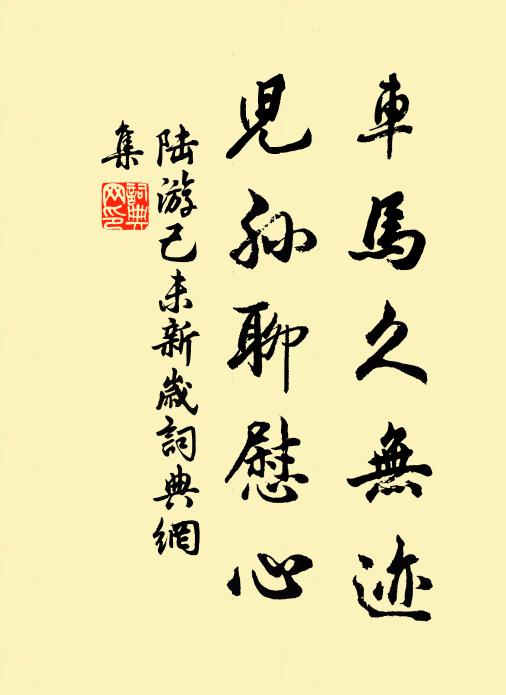 車馬久無迹
兒孙聊慰心
陸游己未新歲詞典網
集
詞典
网印